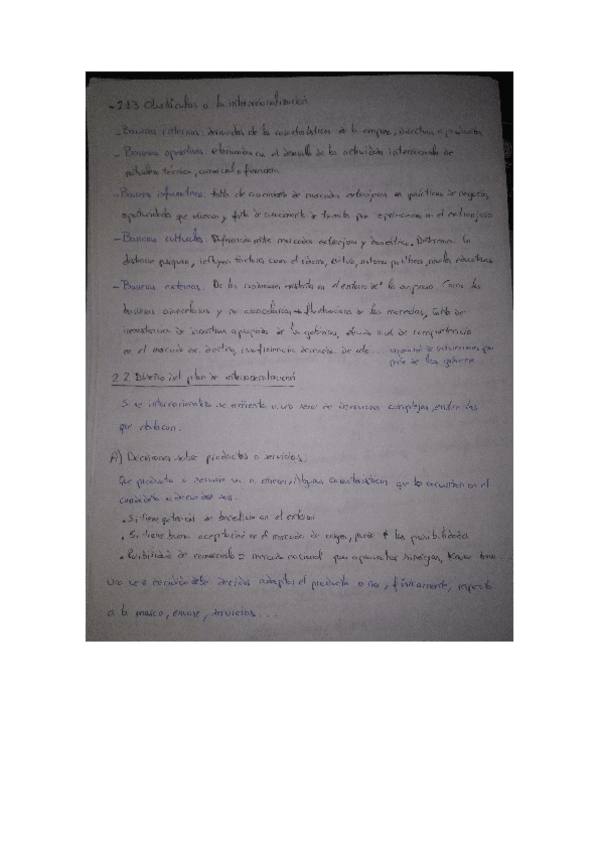 - 2.1.3 Obstáculos a la internacionalización
- Barreras internas: derivadas de las características de la empresa, directivos o producto
- Barreras operativas: en el desarrollo de las actividades internacionales de
técnica, comercial o financiera
- Barreras informativas: falta de conocimiento de mercados extranjeros en prácticas de negocio,
oportunidades que ofrecen y falta de conocimiento de en el extranjero
- Barreras culturales: Diferencias entre mercados extranjero y doméstico.
distancia psíquica, influyen factores como el idioma, cultura, sistema político, niveles educativos
- Barreras externas: De las en el entorno de la empresa. Como las
barreras arancelarias y no arancelarias, fluctuaciones de las monedas, falta de
de incentivos apropiados de los gobiernos, elevado nivel de competencia
en el mercado de destino, insuficiencia de subvenciones por
parte de los gobiernos
2.2 Diseño del plan de internacionalización
Si se internacionaliza se enfrenta a una serie de decisiones complejas, entre las
que destacan:
A) Decisiones sobre productos o servicios.
Que producto o servicio va a ofrecer, Algunas características que los en
candidatos son:
• Si tiene potencial de beneficio en el entorno
• Si tiene buena aceptación en el mercado de origen, puede las posibilidades
• Posibilidad de mercado nacional para aprovechar sinergias, know how...
Una vez debe decidir adaptar el producto o no, físicamente, respecto
a la marca, envase, servicios...